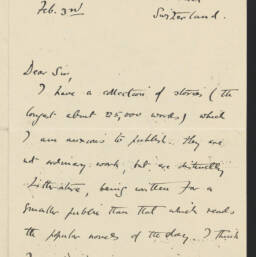 Feb. 3rd
Switzerland.
Dear Sir,
I have a collection of stories (the
longest about 25,000 words) which
I am anxious to publish. They are
not ordinary work, but are distinctly
litterature, being written for a
smaller public than that which reads
the popular novels of the day. I think